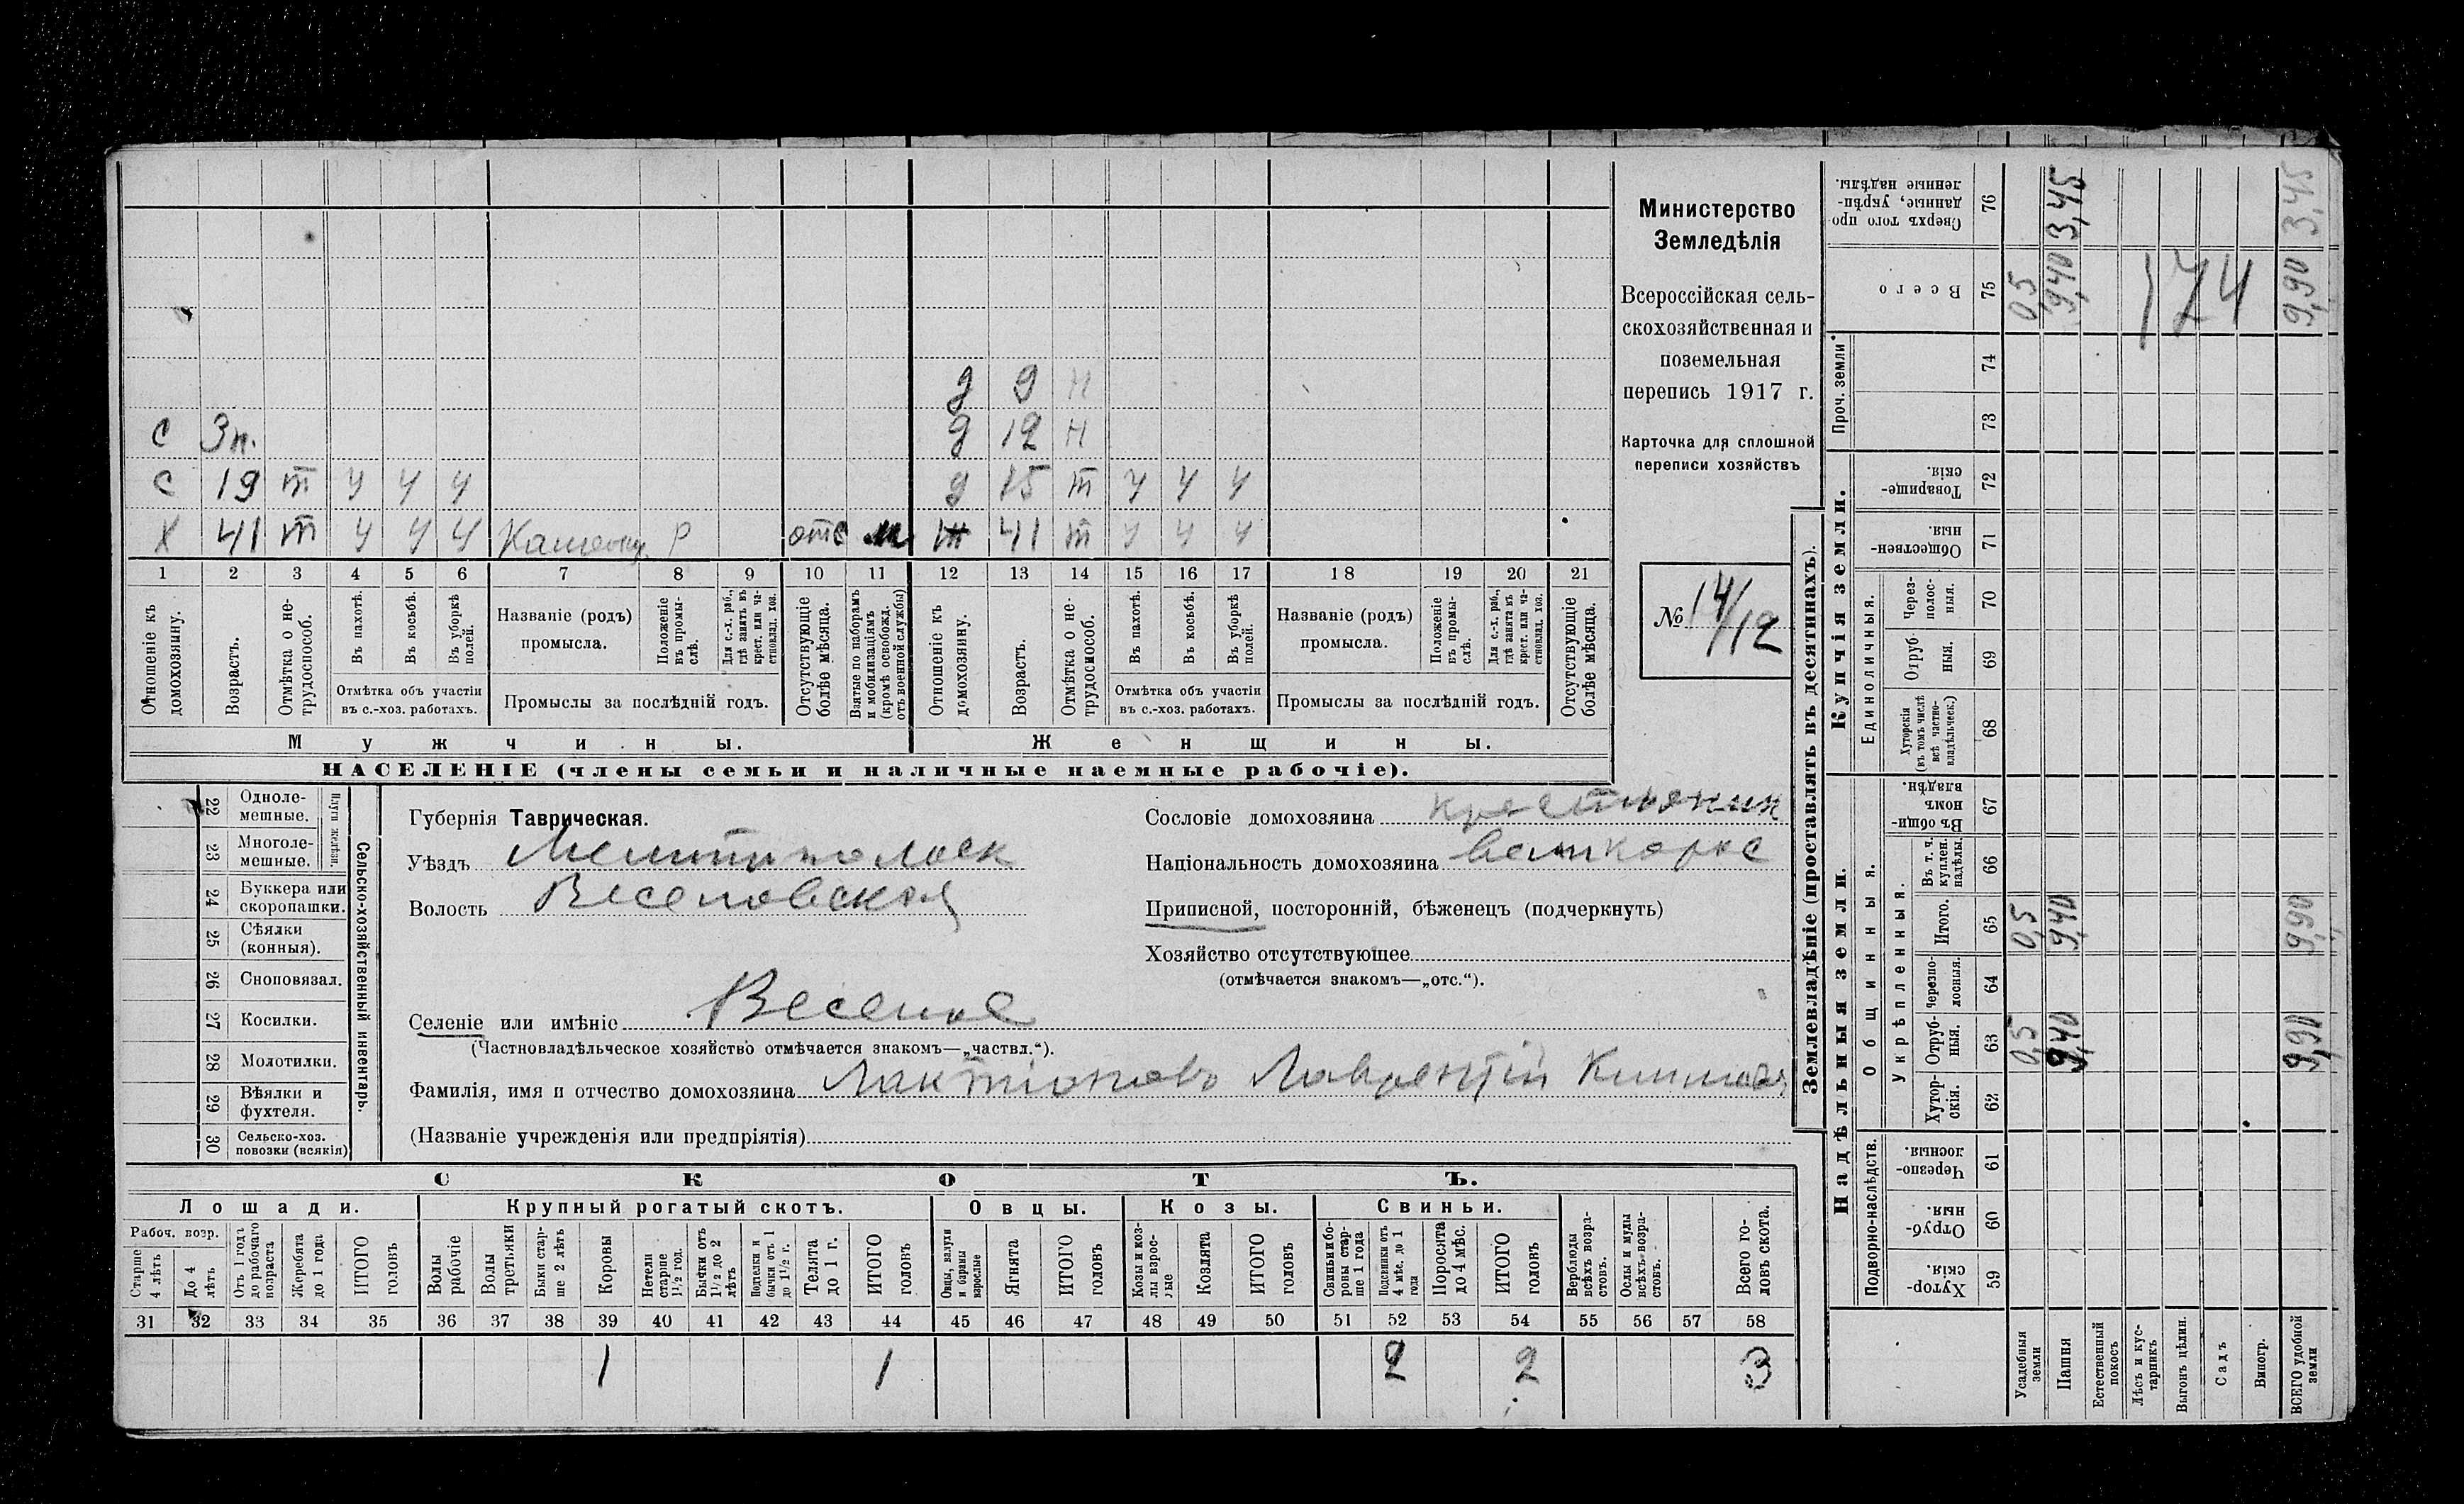 д 9 н
с 3 н. д 12 н
с 19 т у у у д 15 т у у у
х 41 т у у у Р отс м ж 41 т у у у
1 2 3 4 5 6 7 8 9 10 11 12 13 14 15 16 17 18 19 20 21
Отношеніе къ домохозяину.
Возрастъ.
Отмѣтка о не-трудоспособ.
Въ пахотѣ.
Въ косьбѣ.
Въ уборкѣ полей.
Отмѣтка объ участіи
въ с.-хоз. работахъ.
Названіе (родъ)
промысла.
Положеніе въ промы-слѣ.
Для с.-х. раб., гдѣ занятъ въ крест. или ча-стновлад. хоз.
Промыслы за послѣдній годъ.
Отсутствующіе болѣе мѣсяца.
Взятые по наборамъ и мобилизаціямъ (кромѣ освобожд. отъ военной службы)
Отношеніе къ домохозяину.
Возрастъ.
Отмѣтка о не-трудоспособ.
Въ пахотѣ.
Въ косьбѣ.
Въ уборкѣ полей.
Отмѣтка объ участіи
въ с.-хоз. работахъ.
Названіе (родъ)
промысла.
Положеніе въ промы-слѣ.
Для с.-х. раб., гдѣ занятъ въ крест. или ча-стновлад. хоз.
Промыслы за послѣдній годъ.
Отсутствующіе болѣе мѣсяца.
Мужчины. Женщины.
НАСЕЛЕНІЕ (члены семьи и наличные наемные рабочіе).
Министерство
Земледѣлія
Всероссійская сель-
скохозяйственная и
поземельная
перепись 1917 г.
Карточка для сплошной
переписи хозяйствъ
№ 14/12
Сельско-хозяйственный инвентарь.
Плуги желѣзн.
22 Одноле-мешные.
23 Многоле-мешные.
24 Буккера или скоропашки.
25 Сѣялки (конныя).
26 Сноповязал.
27 Косилки.
28 Молотилки.
29 Вѣялки и фухтеля.
30 Сельско-хоз. повозки (всякія)
Губернія Таврическая.
Уѣздъ Мелитопольск
Волость Веселовская
Селеніе или имѣніе Веселое
(Частновладѣльческое хозяйство отмѣчается знакомъ—„частвл.“).
Фамилія, имя и отчество домохозяина Лактіоновъ Лаврентій
(Названіе учрежденія или предпріятія)
Сословіе домохозяина крестьянин
Національность домохозяина великорос
Приписной, посторонній, бѣженецъ (подчеркнуть)
Хозяйство отсутствующее
(отмѣчается знакомъ—„отс.“).
СКОТЪ.
Лошади. Крупный рогатый скотъ. Овцы. Козы. Свиньи.
Рабоч. возр.
Старше 4 лѣтъ
До 4 лѣтъ
Отъ 1 года до рабочаго возраста
Жеребята до 1 года
ИТОГО головъ
Волы рабочіе
Волы третьяки
Быки стар-ше 2 лѣтъ
Коровы
Нетели старше 1½ год.
Бычки отъ 1½ до 2 лѣтъ
Подтелки и бычки отъ 1 до 1½ г.
Телята до 1 г.
ИТОГО головъ
Овцы, валухи и бараны взрослые
Ягнята
ИТОГО головъ
Козы и коз-лы взрос-лые
Козлята
ИТОГО головъ
Свиньи и бо-ровы стар-ше 1 года
Подсвинки отъ 4 мѣс. до 1 года
Поросята до 4 мѣс.
ИТОГО головъ
Верблюды всѣхъ возра-стовъ.
Ослы и мулы всѣхъ возра-стовъ.
Всего го-ловъ скота.
31 32 33 34 35 36 37 38 39 40 41 42 43 44 45 46 47 48 49 50 51 52 53 54 55 56 57 58
1 1 2 2 3
Землевладѣніе (проставлять въ десятинахъ).
Надѣльныя земли. Купчія земли. Проч. земли
Подворно-наслѣдств. Общинныя. Единоличныя.
Укрѣпленныя.
Хутор-скія. 59
Отруб-ныя. 60
Черезпо-лосныя. 61
Хутор-скія. 62
Отруб-ныя. 63 0,5 9,40 9,90
Черезпо-лосныя. 64
Итого. 65 0,5 9,40 9,90
Въ т. ч. куплен. надѣлы. 66
Въ общи-номъ владѣн. 67
Хуторскія (въ томъ числѣ всѣ частно-владѣльческ.) 68
Отруб-ныя. 69
Через-полос-ныя. 70
Обществен-ныя. 71
Товарище-скія. 72
73
74
Всего 75 0,5 9,40 9,90
Сверхъ того про-данные, укрѣп-ленные надѣлы. 76 3,45 3,45
174
Усадебныя земли
Пашня
Естественный покосъ
Лѣсъ и кус-тарникъ
Выгонъ цѣлин.
Садъ
Виногр.
ВСЕГО удобной земли